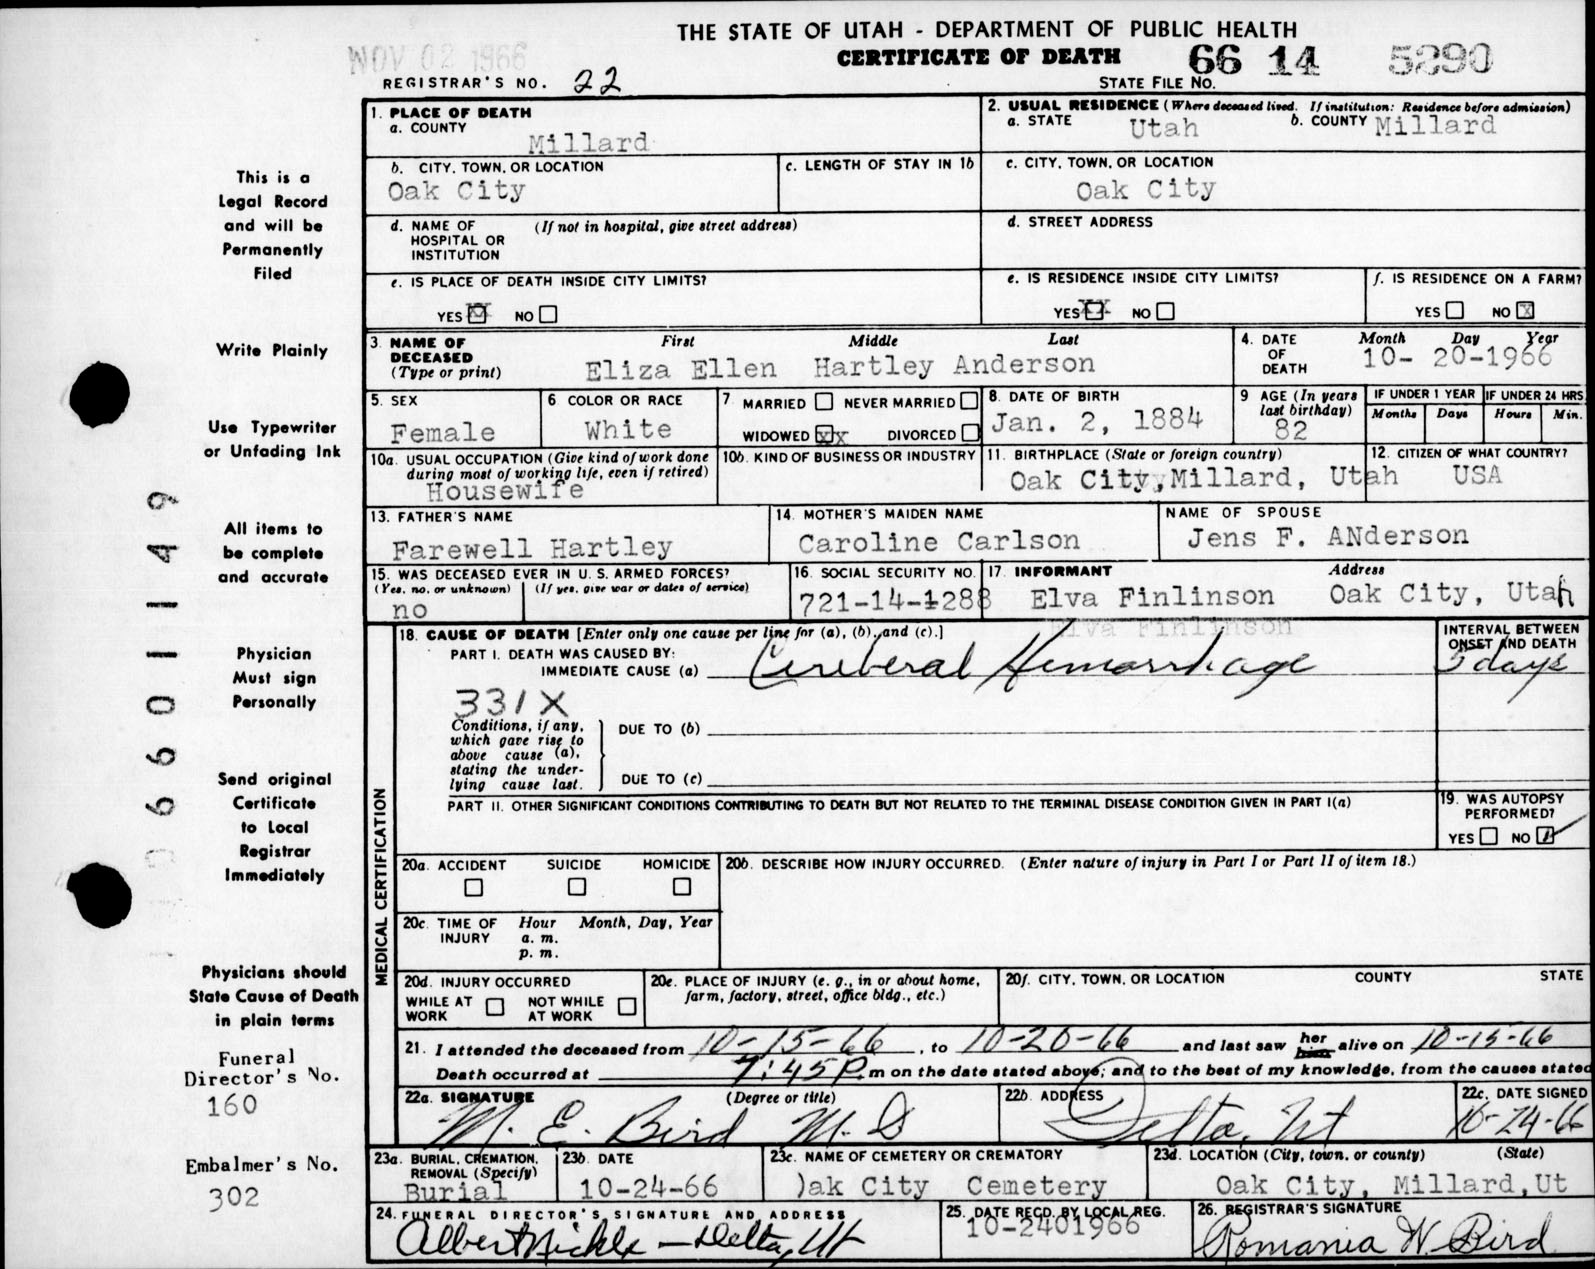 THE STATE OF UTAH - DEPARTMENT OF PUBLIC HEALTH
NOV 02 1966
CERTIFICATE OF DEATH 66 14 5290
REGISTRAR'S NO. 22 STATE FILE NO.
This is a
Legal Record
and will be
Permanently
Filed
Write Plainly
Use Typewriter
or Unfading Ink
All items to
be complete
and accurate
Physician
Must sign
Personally
Send original
Certificate
to Local
Registrar
Immediately
Physicians should
State Cause of Death
in plain terms
Funeral
Director's No.
160
Embalmer's No.
302
0 6 6 0 1 1 4 9
1. PLACE OF DEATH
a. COUNTY
Millard
2. USUAL RESIDENCE (Where deceased lived. If institution: Residence before admission)
a. STATE Utah b. COUNTY Millard
b. CITY, TOWN, OR LOCATION
Oak City
c. LENGTH OF STAY IN 1b
c. CITY, TOWN, OR LOCATION
Oak City
d. NAME OF (If not in hospital, give street address)
HOSPITAL OR
INSTITUTION
d. STREET ADDRESS
e. IS PLACE OF DEATH INSIDE CITY LIMITS?
YES X NO
e. IS RESIDENCE INSIDE CITY LIMITS?
YES XX NO
f. IS RESIDENCE ON A FARM?
YES NO X
3. NAME OF First Middle Last
DECEASED
(Type or print) Eliza Ellen Hartley Anderson
4. DATE Month Day Year
OF 10- 20-1966
DEATH
5. SEX
Female
6 COLOR OR RACE
White
7 MARRIED NEVER MARRIED
WIDOWED XX DIVORCED
8. DATE OF BIRTH
Jan. 2, 1884
9 AGE (In years
last birthday)
82
IF UNDER 1 YEAR
Months Days
IF UNDER 24 HRS.
Hours Min.
10a. USUAL OCCUPATION (Give kind of work done
during most of working life, even if retired)
Housewife
10b. KIND OF BUSINESS OR INDUSTRY
11. BIRTHPLACE (State or foreign country)
Oak City, Millard, Utah
12. CITIZEN OF WHAT COUNTRY?
USA
13. FATHER'S NAME
Farewell Hartley
14. MOTHER'S MAIDEN NAME
Caroline Carlson
NAME OF SPOUSE
Jens F. ANderson
15. WAS DECEASED EVER IN U. S. ARMED FORCES?
(Yes, no, or unknown) (If yes, give war or dates of service)
no
16. SOCIAL SECURITY NO.
721-14-1288
17. INFORMANT Address
Elva Finlinson Oak City, Utah
Elva Finlinson
MEDICAL CERTIFICATION
18. CAUSE OF DEATH [Enter only one cause per line for (a), (b), and (c).]
PART I. DEATH WAS CAUSED BY:
IMMEDIATE CAUSE (a) Cereberal Hemorrhage
INTERVAL BETWEEN
ONSET AND DEATH
5 days
331X
Conditions, if any,
which gave rise to
above cause (a),
stating the under-
lying cause last.
DUE TO (b)
DUE TO (c)
PART II. OTHER SIGNIFICANT CONDITIONS CONTRIBUTING TO DEATH BUT NOT RELATED TO THE TERMINAL DISEASE CONDITION GIVEN IN PART I(a)
19. WAS AUTOPSY
PERFORMED?
YES NO
20a. ACCIDENT SUICIDE HOMICIDE
20b. DESCRIBE HOW INJURY OCCURRED. (Enter nature of injury in Part I or Part II of item 18.)
20c. TIME OF Hour Month, Day, Year
INJURY a. m.
p. m.
20d. INJURY OCCURRED
WHILE AT NOT WHILE
WORK AT WORK
20e. PLACE OF INJURY (e. g., in or about home,
farm, factory, street, office bldg., etc.)
20f. CITY, TOWN, OR LOCATION COUNTY STATE
21. I attended the deceased from 10-15-66, to 10-20-66 and last saw her him alive on 10-15-66
Death occurred at 7:45 P.m on the date stated above; and to the best of my knowledge, from the causes stated
22a. SIGNATURE (Degree or title)
M. E. Bird M. D
22b. ADDRESS
Delta, Ut
22c. DATE SIGNED
10-24-66
23a. BURIAL, CREMATION,
REMOVAL (Specify)
Burial
23b. DATE
10-24-66
23c. NAME OF CEMETERY OR CREMATORY
)ak City Cemetery
23d. LOCATION (City, town, or county) (State)
Oak City, Millard, Ut
24. FUNERAL DIRECTOR'S SIGNATURE AND ADDRESS
Albert Nickle - Delta, Ut
25. DATE RECD. BY LOCAL REG.
10-2401966
26. REGISTRAR'S SIGNATURE
Romania W. Bird